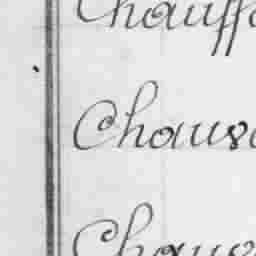 Chauff
Chauv
Chauv